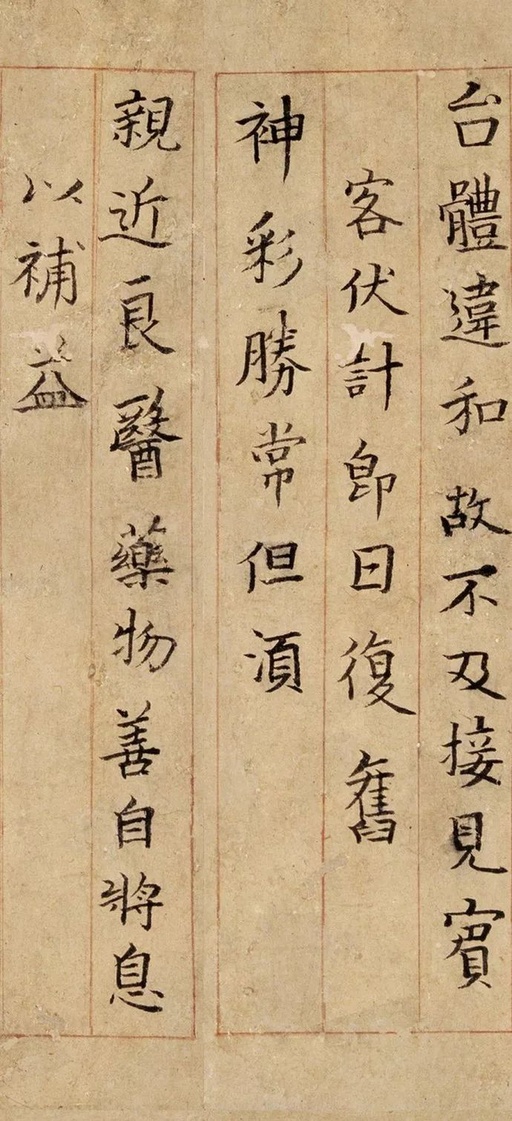 台體違和故不及接見賔
客伏計即日復舊
神彩勝常但湏
親近良醫藥物善自將息
以補益